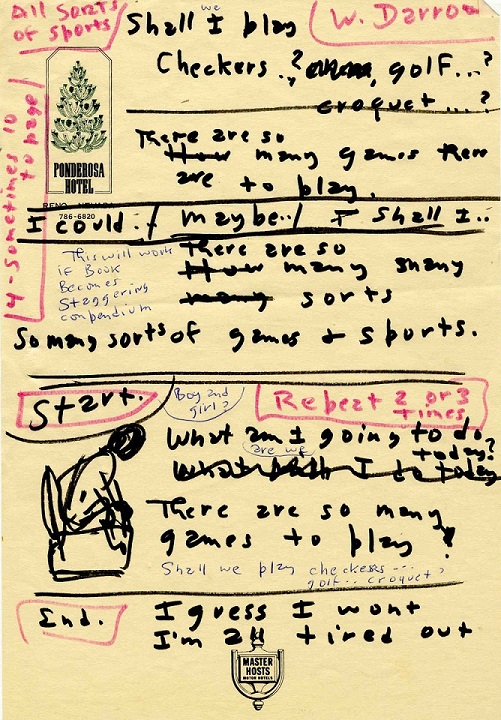 All Sorts
of sports
we
Shall I play
W. Darrow
Checkers..? golf...?
croquet....?
4 - sometimes 10
to page
PONDEROSA
HOTEL
RENO, NEVADA
786-6820
There are so
How many games there
are to play.
I could./ maybe../ I shall I..
This will work
if Book
Becomes
Staggering
compendium
There are so
How many many
many sorts
So many sorts of games + sports.
Start.
Boy and
girl?
Repeat 2 or 3
times
What am I going to do
are we
today?
What shall I do today
There are so many
games to play!
Shall we play checkers...
golf... croquet?
End.
I guess I wont
I'm all tired out
MASTER
HOSTS
MOTOR HOTELS